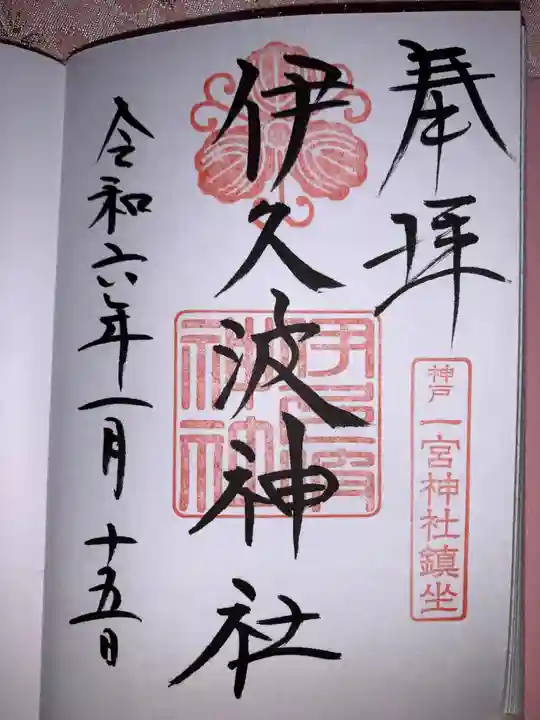 奉拝
神戸 一宮神社鎮坐
伊久波神社
伊久波神社
令和六年一月十五日